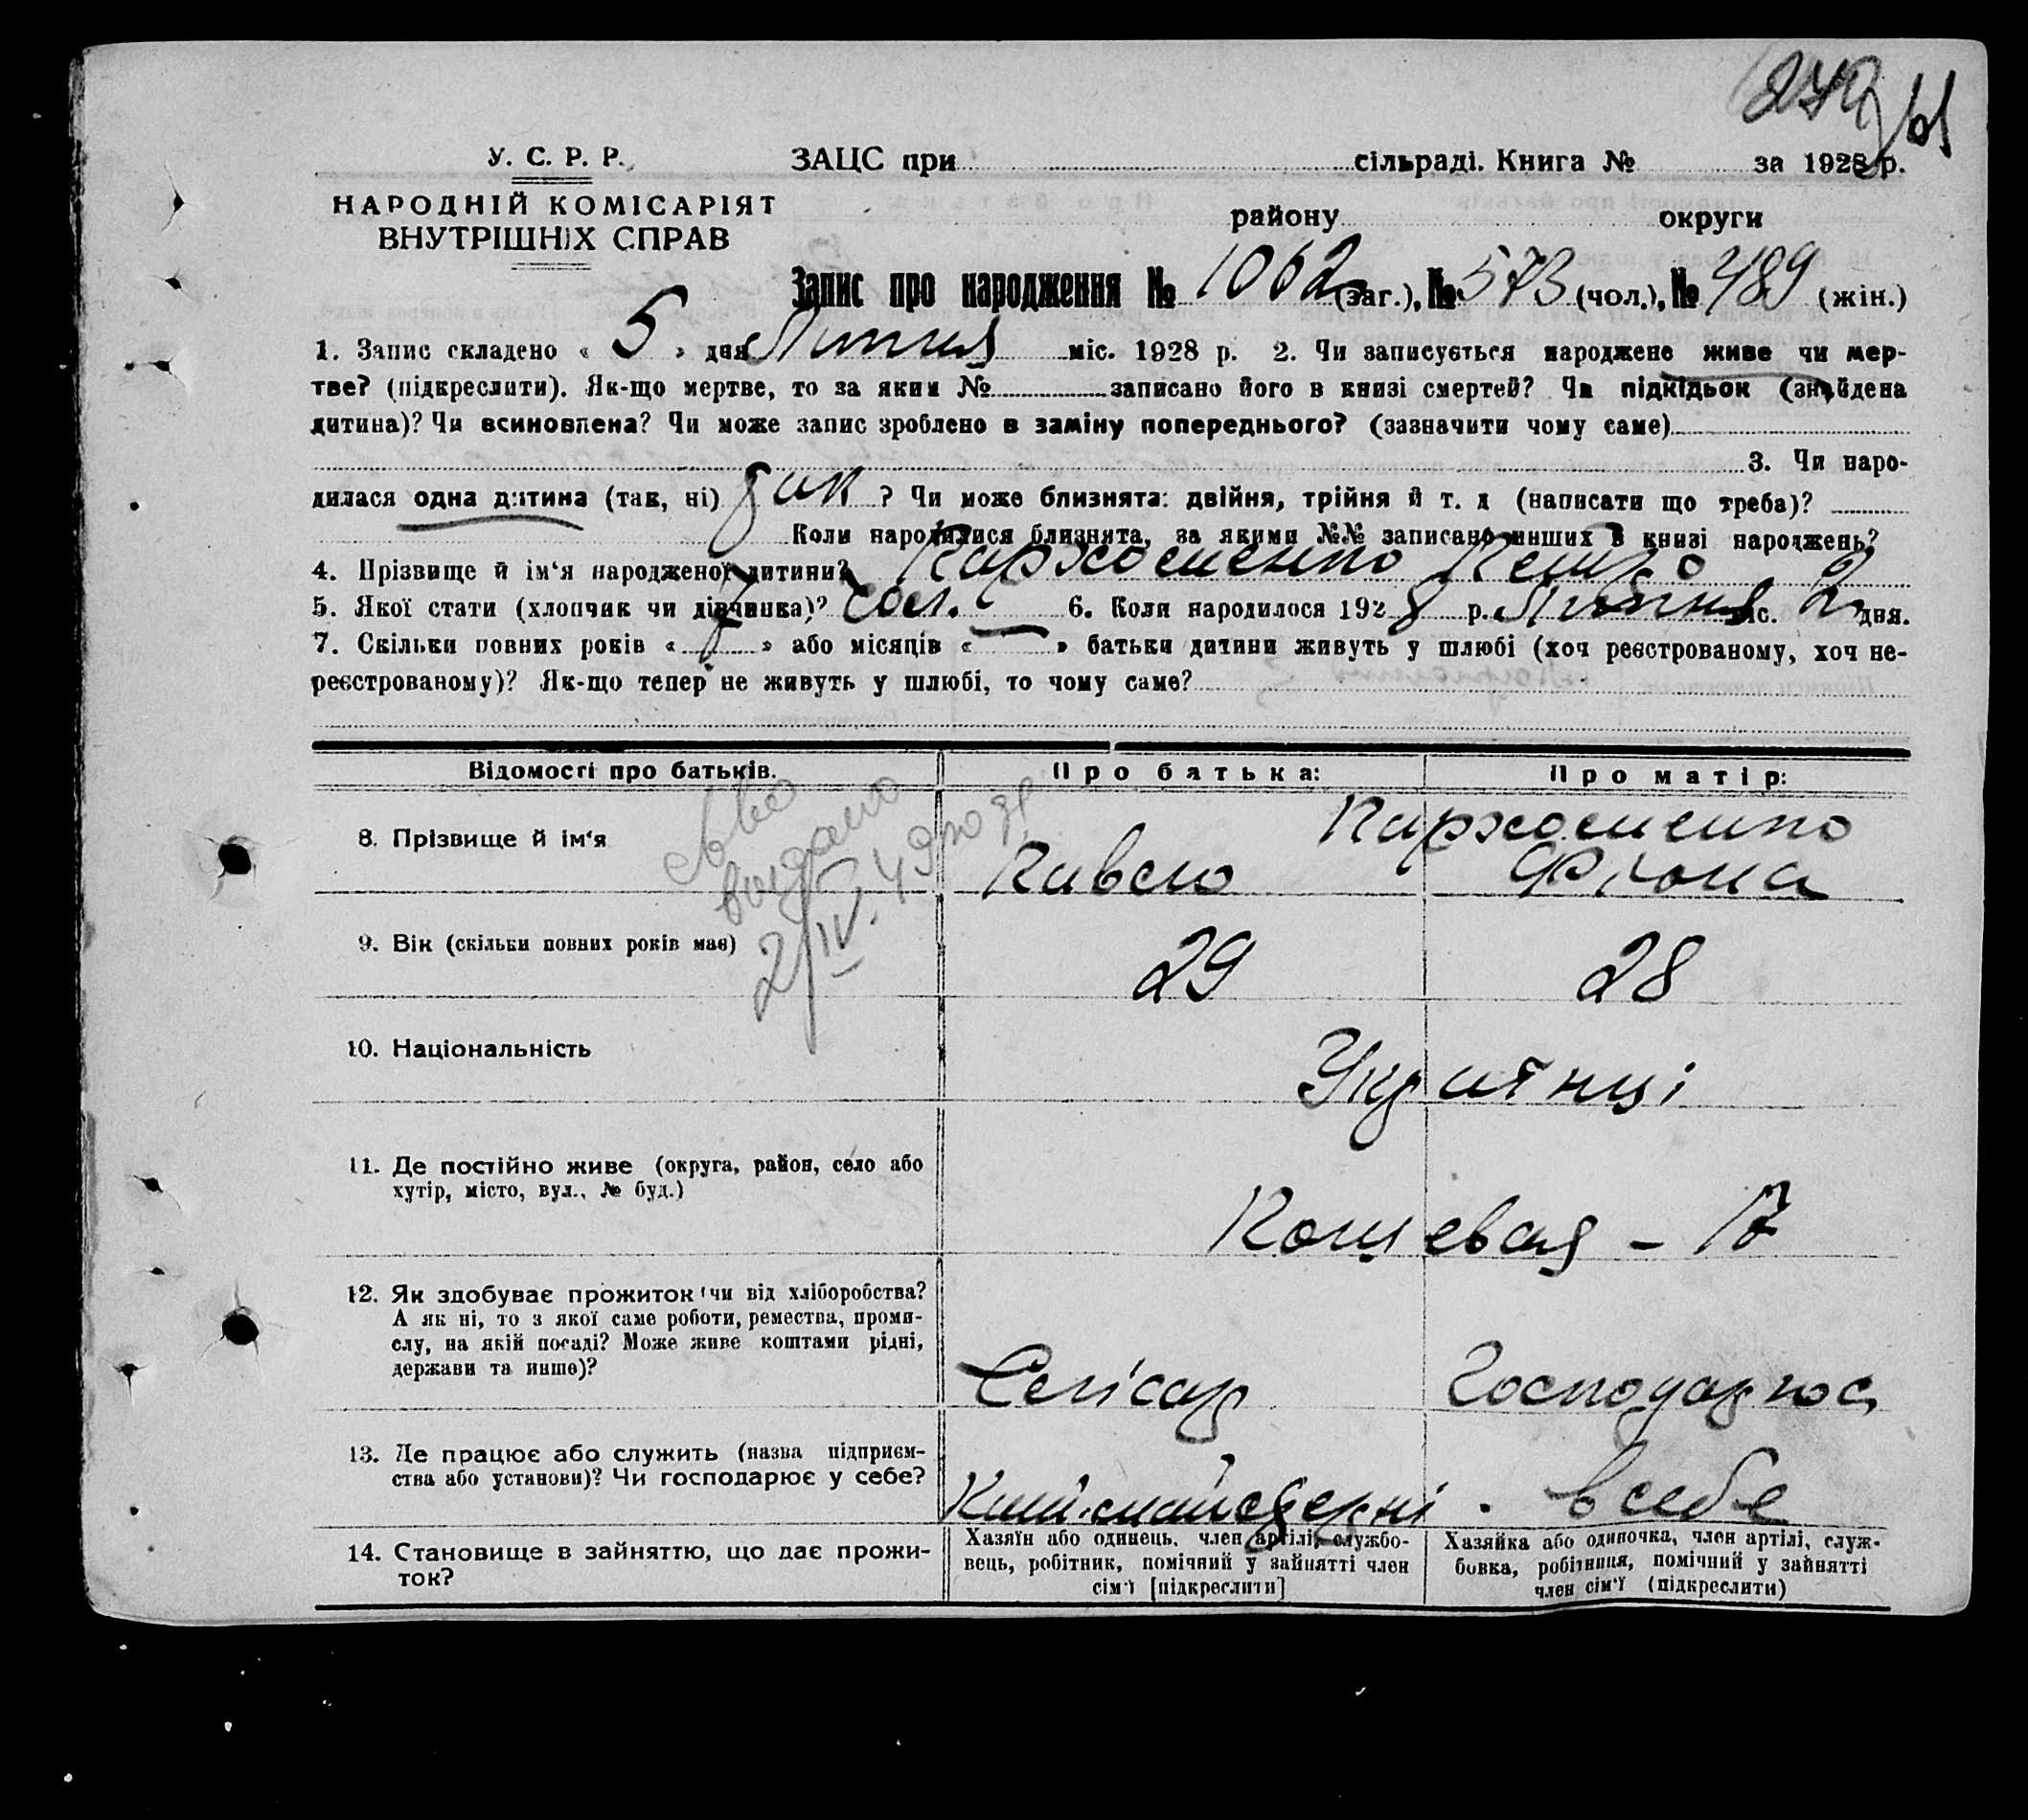 У. С. Р. Р.
НАРОДНІЙ КОМІСАРІЯТ
ВНУТРІШНІХ СПРАВ
ЗАЦС при сільраді. Книга № за 1928 р.
району округи
Запис про народження № 1062 (заг.), № 573 (чол.), № 489 (жін.)
1. Запис складено « 5 » дня Липня міс. 1928 р. 2. Чи записується народжене живе чи мер-
тве? (підкреслити). Як-що мертве, то за яким № записано його в книзі смертей? Чи підкідьок (знайдена
дитина)? Чи всиновлена? Чи може запис зроблено в заміну попереднього? (зазначити чому саме)
3. Чи наро-
дилася одна дитина (так, ні) так ? Чи може близнята: двійня, трійня й т. д (написати що треба)?
Коли народилися близнята, за якими №№ записано инших в книзі народжень?
4. Прізвище й ім‘я народженої дитини? Пархоменко Петро
5. Якої стати (хлопчик чи дівчинка)? чол. 6. Коли народилося 1928 р. Липня міс. 2 дня.
7. Скільки повних років « 7 » або місяців « — » батьки дитини живуть у шлюбі (хоч реєстрованому, хоч не-
реєстрованому)? Як-що тепер не живуть у шлюбі, то чому саме?
Відомості про батьків.
Про батька:
Про матір:
8. Прізвище й ім‘я
Пархоменко
Павело
Фіона
св-во
выдано
2/IV. 49
9. Вік (скільки повних років має)
29
28
10. Національність
Українці
11. Де постійно живе (округа, район, село або
хутір, місто, вул., № буд.)
Кощевая – 17
12. Як здобуває прожиток чи від хліборобства?
А як ні, то з якої саме роботи, ремества, проми-
слу, на якій посаді? Може живе коштами рідні,
держави та инше)?
Слісар
Господарює
13. Де працює або служить (назва підприєм-
ства або установи)? Чи господарює у себе?
в себе
14. Становище в зайняттю, що дає прожи-
ток?
Хазяїн або одинець, член артілі, службо-
вець, робітник, помічний у зайнятті член
сім‘ї [підкреслити]
Хазяйка або одиночка, член артілі, служ-
бовка, робітниця, помічний у зайнятті
член сім‘ї (підкреслити)